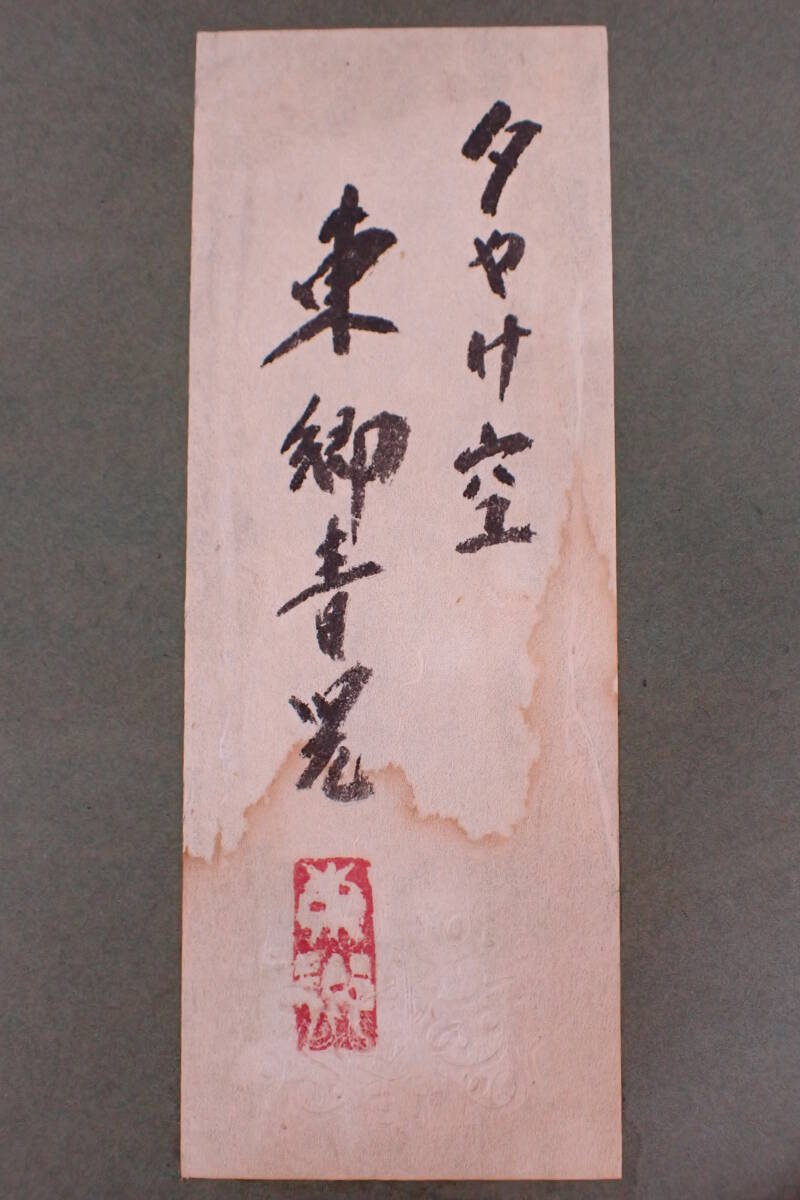 夕やけ空
東郷青児